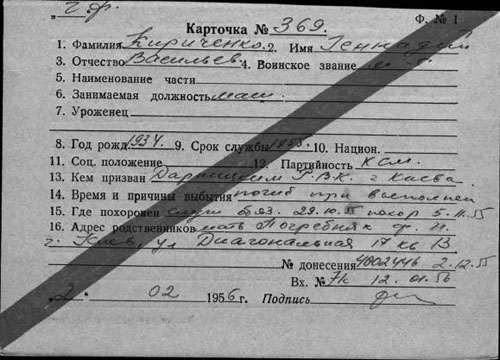 ч.ф. Ф. № 1
Карточка № 369.
1. Фамилия Кириченко 2. Имя Геннадий
3. Отчество Васильев. 4. Воинское звание м
5. Наименование части
6. Занимаемая должность маш.
7. Уроженец
8. Год рожд. 1934. 9. Срок службы 1955. 10. Национ.
11. Соц. положение 12. Партийность к см.
13. Кем призван Дарницким Г.В.К. г Киева
14. Время и причины выбытия погиб при выполнен
15. Где похоронен служ обяз. 29.10.55 похор 5.11.55
16. Адрес родственников мать Погребняк
г. Киев, ул Диагональная 17 кв 13
№ донесения 4002446 2.12.55
Вх. № 12.01.56
2. 02 1956 г. Подпись